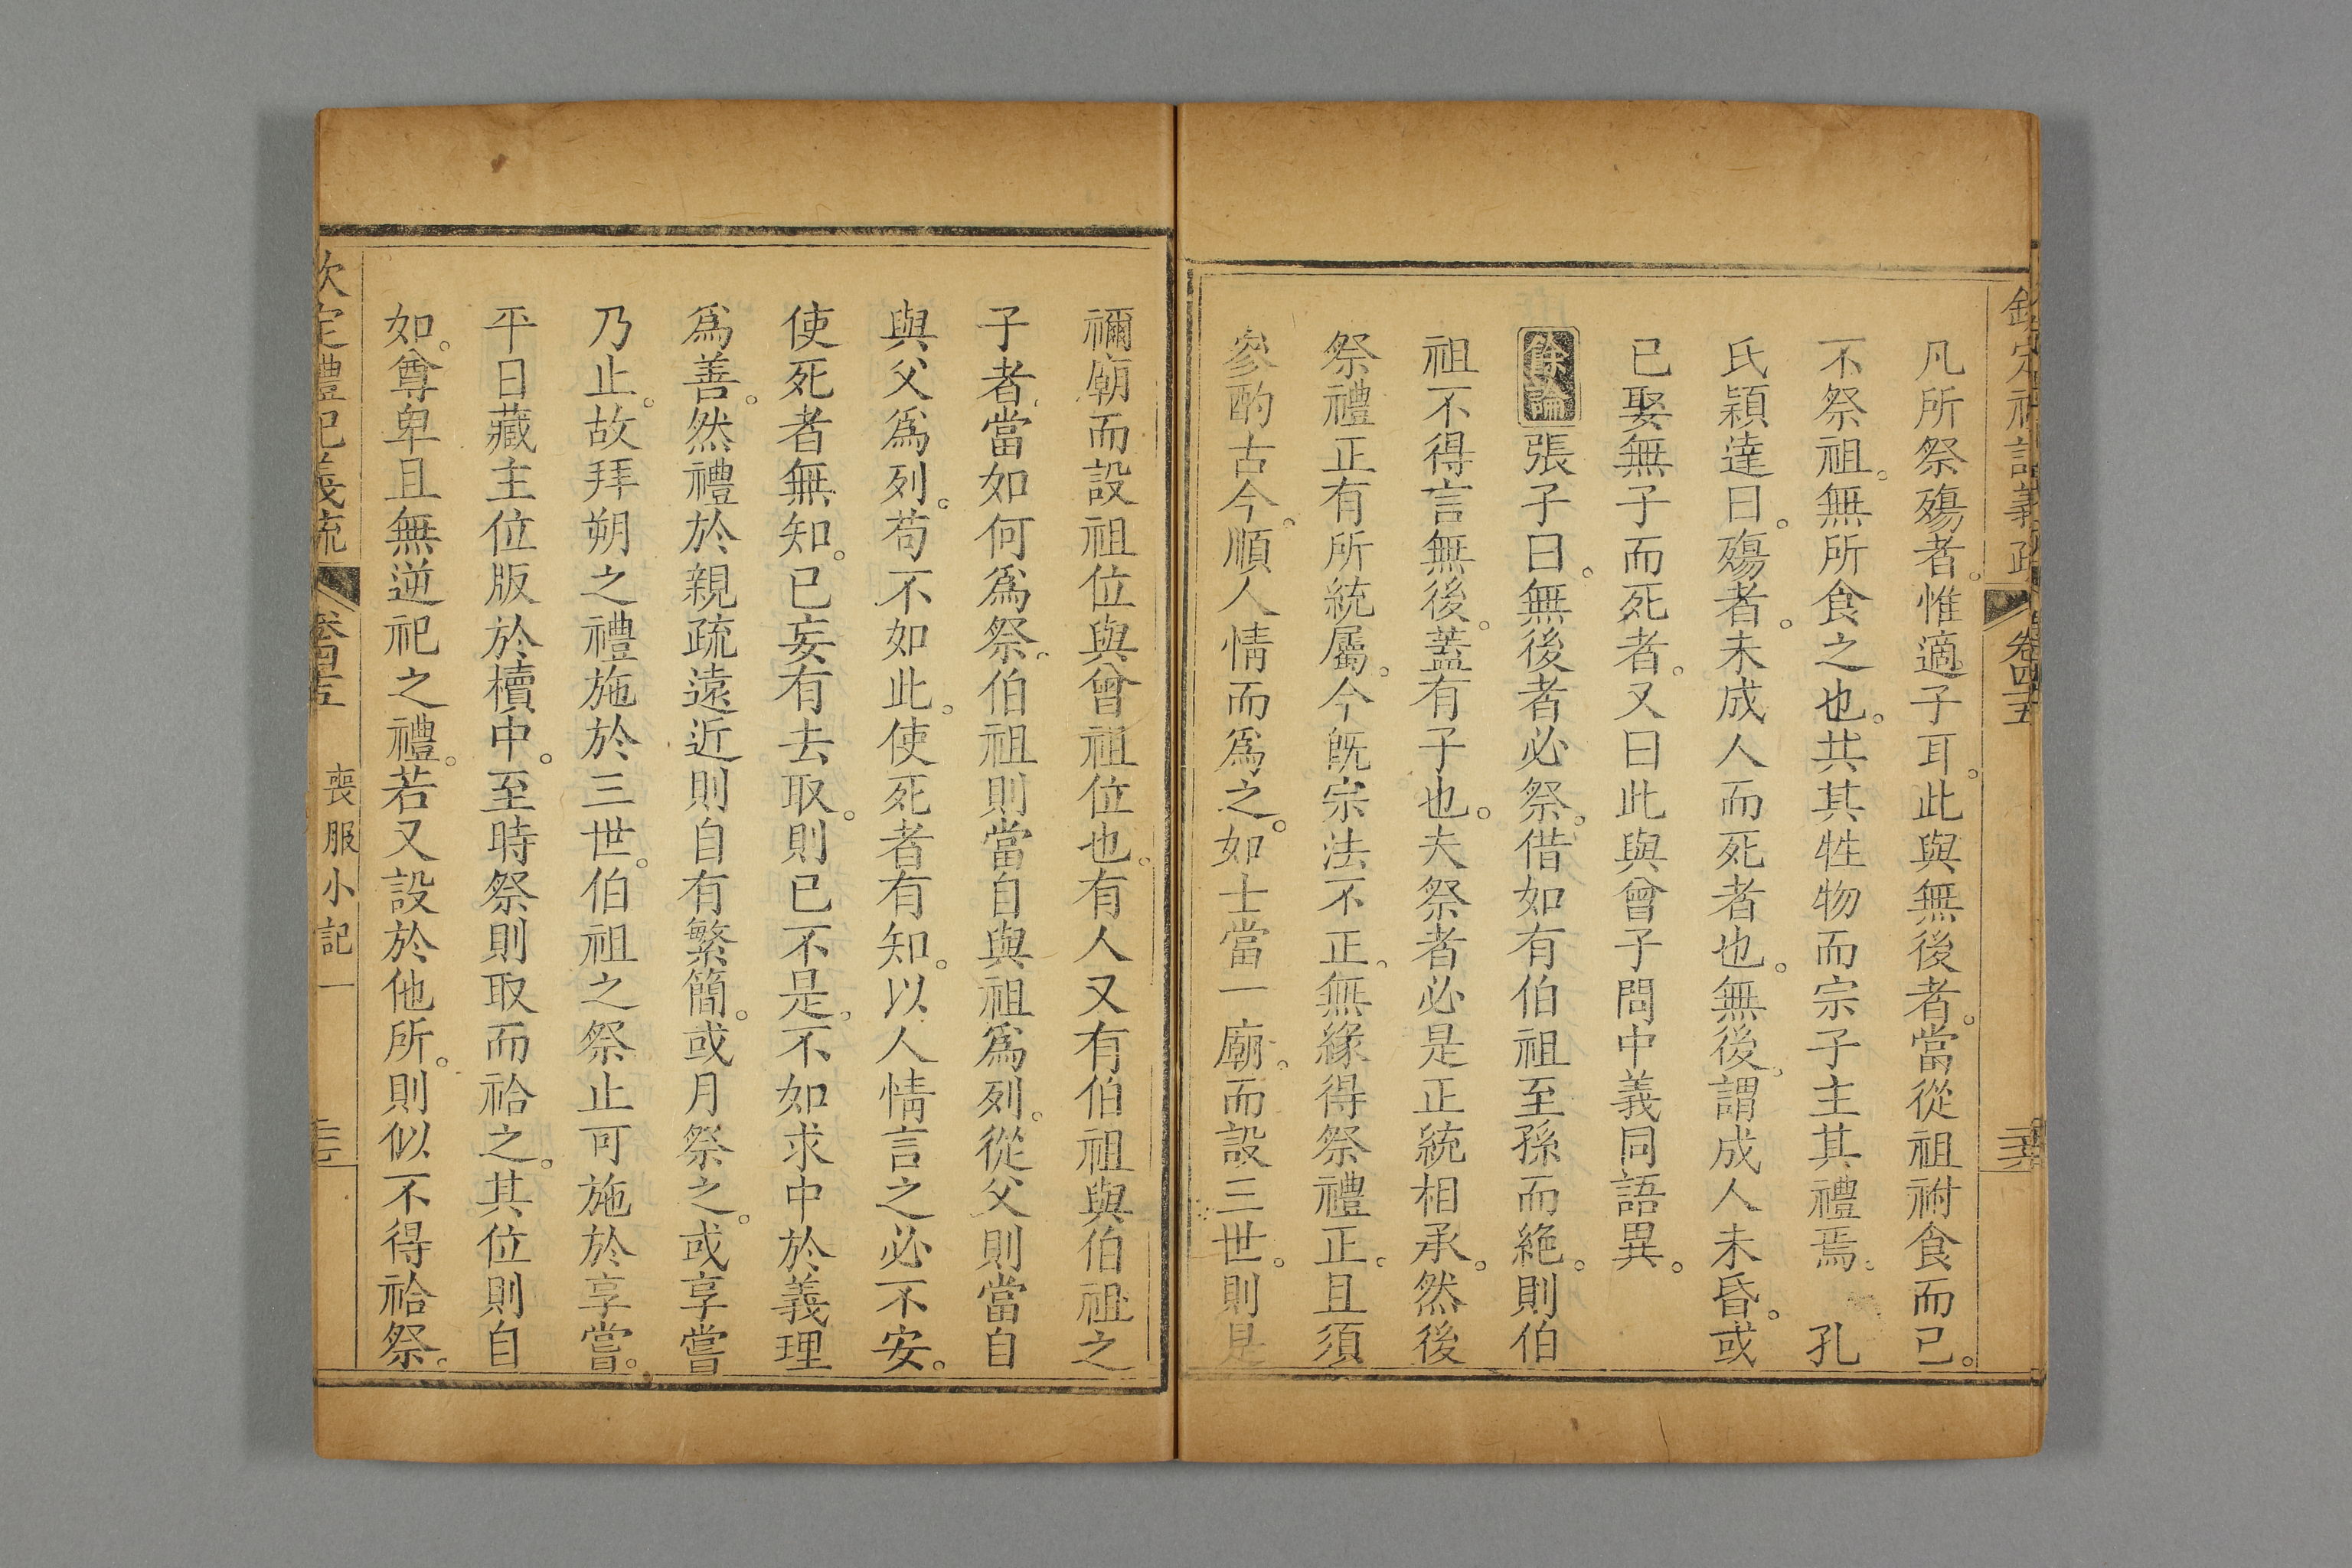 欽定禮記義疏 卷四十五
凡所祭殤者。惟適子耳。此與無後者。當從祖祔食而已。
不祭祖。無所食之也。共其牲物而宗子主其禮焉。 孔
氏穎達曰。殤者。未成人而死者也。無後。謂成人未昏。或
已娶無子而死者。又曰此與曾子問中義同語異。
餘論 張子曰。無後者必祭。借如有伯祖至孫而絕。則伯
祖不得言無後。蓋有子也。夫祭者必是正統相承。然後
祭禮正有所統屬。今旣宗法不正。無緣得祭禮正。且須
參酌古今。順人情而爲之。如士當一廟。而設三世。則是
禰廟而設祖位與曾祖位也。有人又有伯祖與伯祖之
子者。當如何爲祭。伯祖則當自與祖爲列。從父則當自
與父爲列。苟不如此。使死者有知。以人情言之必不安。
使死者無知。已妄有去取。則已不是。不如求中於義理
爲善。然禮於親疏遠近則自有繁簡。或月祭之。或享嘗
乃止。故拜朔之禮施於三世。伯祖之祭止可施於享嘗。
平日藏主位版於櫝中。至時祭則取而祫之。其位則自
如。尊卑且無逆祀之禮。若又設於他所。則似不得祫祭。
欽定禮記義疏 卷四十五 喪服小記一